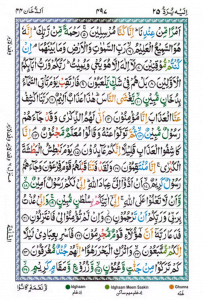 اَلدُّخَان ٤٤ ٤٩٧ اِلَيْهِ يُرَدُّ ٢٥
اَمْرًا مِّنْ عِنْدِنَا ؕ اِنَّا كُنَّا مُرْسِلِيْنَ رَحْمَةً مِّنْ رَّبِّكَ ؕ اِنَّهٗ
هُوَ السَّمِيْعُ الْعَلِيْمُ رَبِّ السَّمٰوٰتِ وَالْاَرْضِ وَمَا بَيْنَهُمَا ۘ اِنْ
كُنْتُمْ مُّوْقِنِيْنَ لَاۤ اِلٰهَ اِلَّا هُوَ يُحْیٖ وَيُمِيْتُ ؕ رَبُّكُمْ وَرَبُّ اٰبَآئِكُمُ
الْاَوَّلِيْنَ بَلْ هُمْ فِیْ شَكٍّ يَّلْعَبُوْنَ فَارْتَقِبْ يَوْمَ تَاْتِی السَّمَآءُ
بِدُخَانٍ مُّبِيْنٍ يَّغْشَی النَّاسَ ؕ هٰذَا عَذَابٌ اَلِيْمٌ رَبَّنَا اكْشِفْ
عَنَّا الْعَذَابَ اِنَّا مُؤْمِنُوْنَ اَنّٰی لَهُمُ الذِّكْرٰی وَقَدْ جَآءَهُمْ
رَسُوْلٌ مُّبِيْنٌ ثُمَّ تَوَلَّوْا عَنْهُ وَقَالُوْا مُعَلَّمٌ مَّجْنُوْنٌ اِنَّا
كَاشِفُوا الْعَذَابِ قَلِيْلًا اِنَّكُمْ عَآئِدُوْنَ يَوْمَ نَبْطِشُ الْبَطْشَةَ
الْكُبْرٰی ۚ اِنَّا مُنْتَقِمُوْنَ وَلَقَدْ فَتَنَّا قَبْلَهُمْ قَوْمَ فِرْعَوْنَ وَجَآءَهُمْ
رَسُوْلٌ كَرِيْمٌ اَنْ اَدُّوْۤا اِلَیَّ عِبَادَ اللّٰهِ ؕ اِنِّیْ لَكُمْ رَسُوْلٌ اَمِيْنٌ
وَّاَنْ لَّا تَعْلُوْا عَلَی اللّٰهِ ۚ اِنِّیْۤ اٰتِيْكُمْ بِسُلْطٰنٍ مُّبِيْنٍ وَاِنِّیْ عُذْتُ
بِرَبِّیْ وَرَبِّكُمْ اَنْ تَرْجُمُوْنِ وَاِنْ لَّمْ تُؤْمِنُوْا لِیْ فَاعْتَزِلُوْنِ
فَدَعَا رَبَّهٗۤ اَنَّ هٰۤؤُلَآءِ قَوْمٌ مُّجْرِمُوْنَ فَاَسْرِ بِعِبَادِیْ لَيْلًا
اِنَّكُمْ مُّتَّبَعُوْنَ وَاتْرُكِ الْبَحْرَ رَهْوًا ؕ اِنَّهُمْ جُنْدٌ مُّغْرَقُوْنَ
كَمْ تَرَكُوْا مِنْ جَنّٰتٍ وَّعُيُوْنٍ وَّزُرُوْعٍ وَّمَقَامٍ كَرِيْمٍ
Idghaam Idghaam Meem Saakin Ghunna